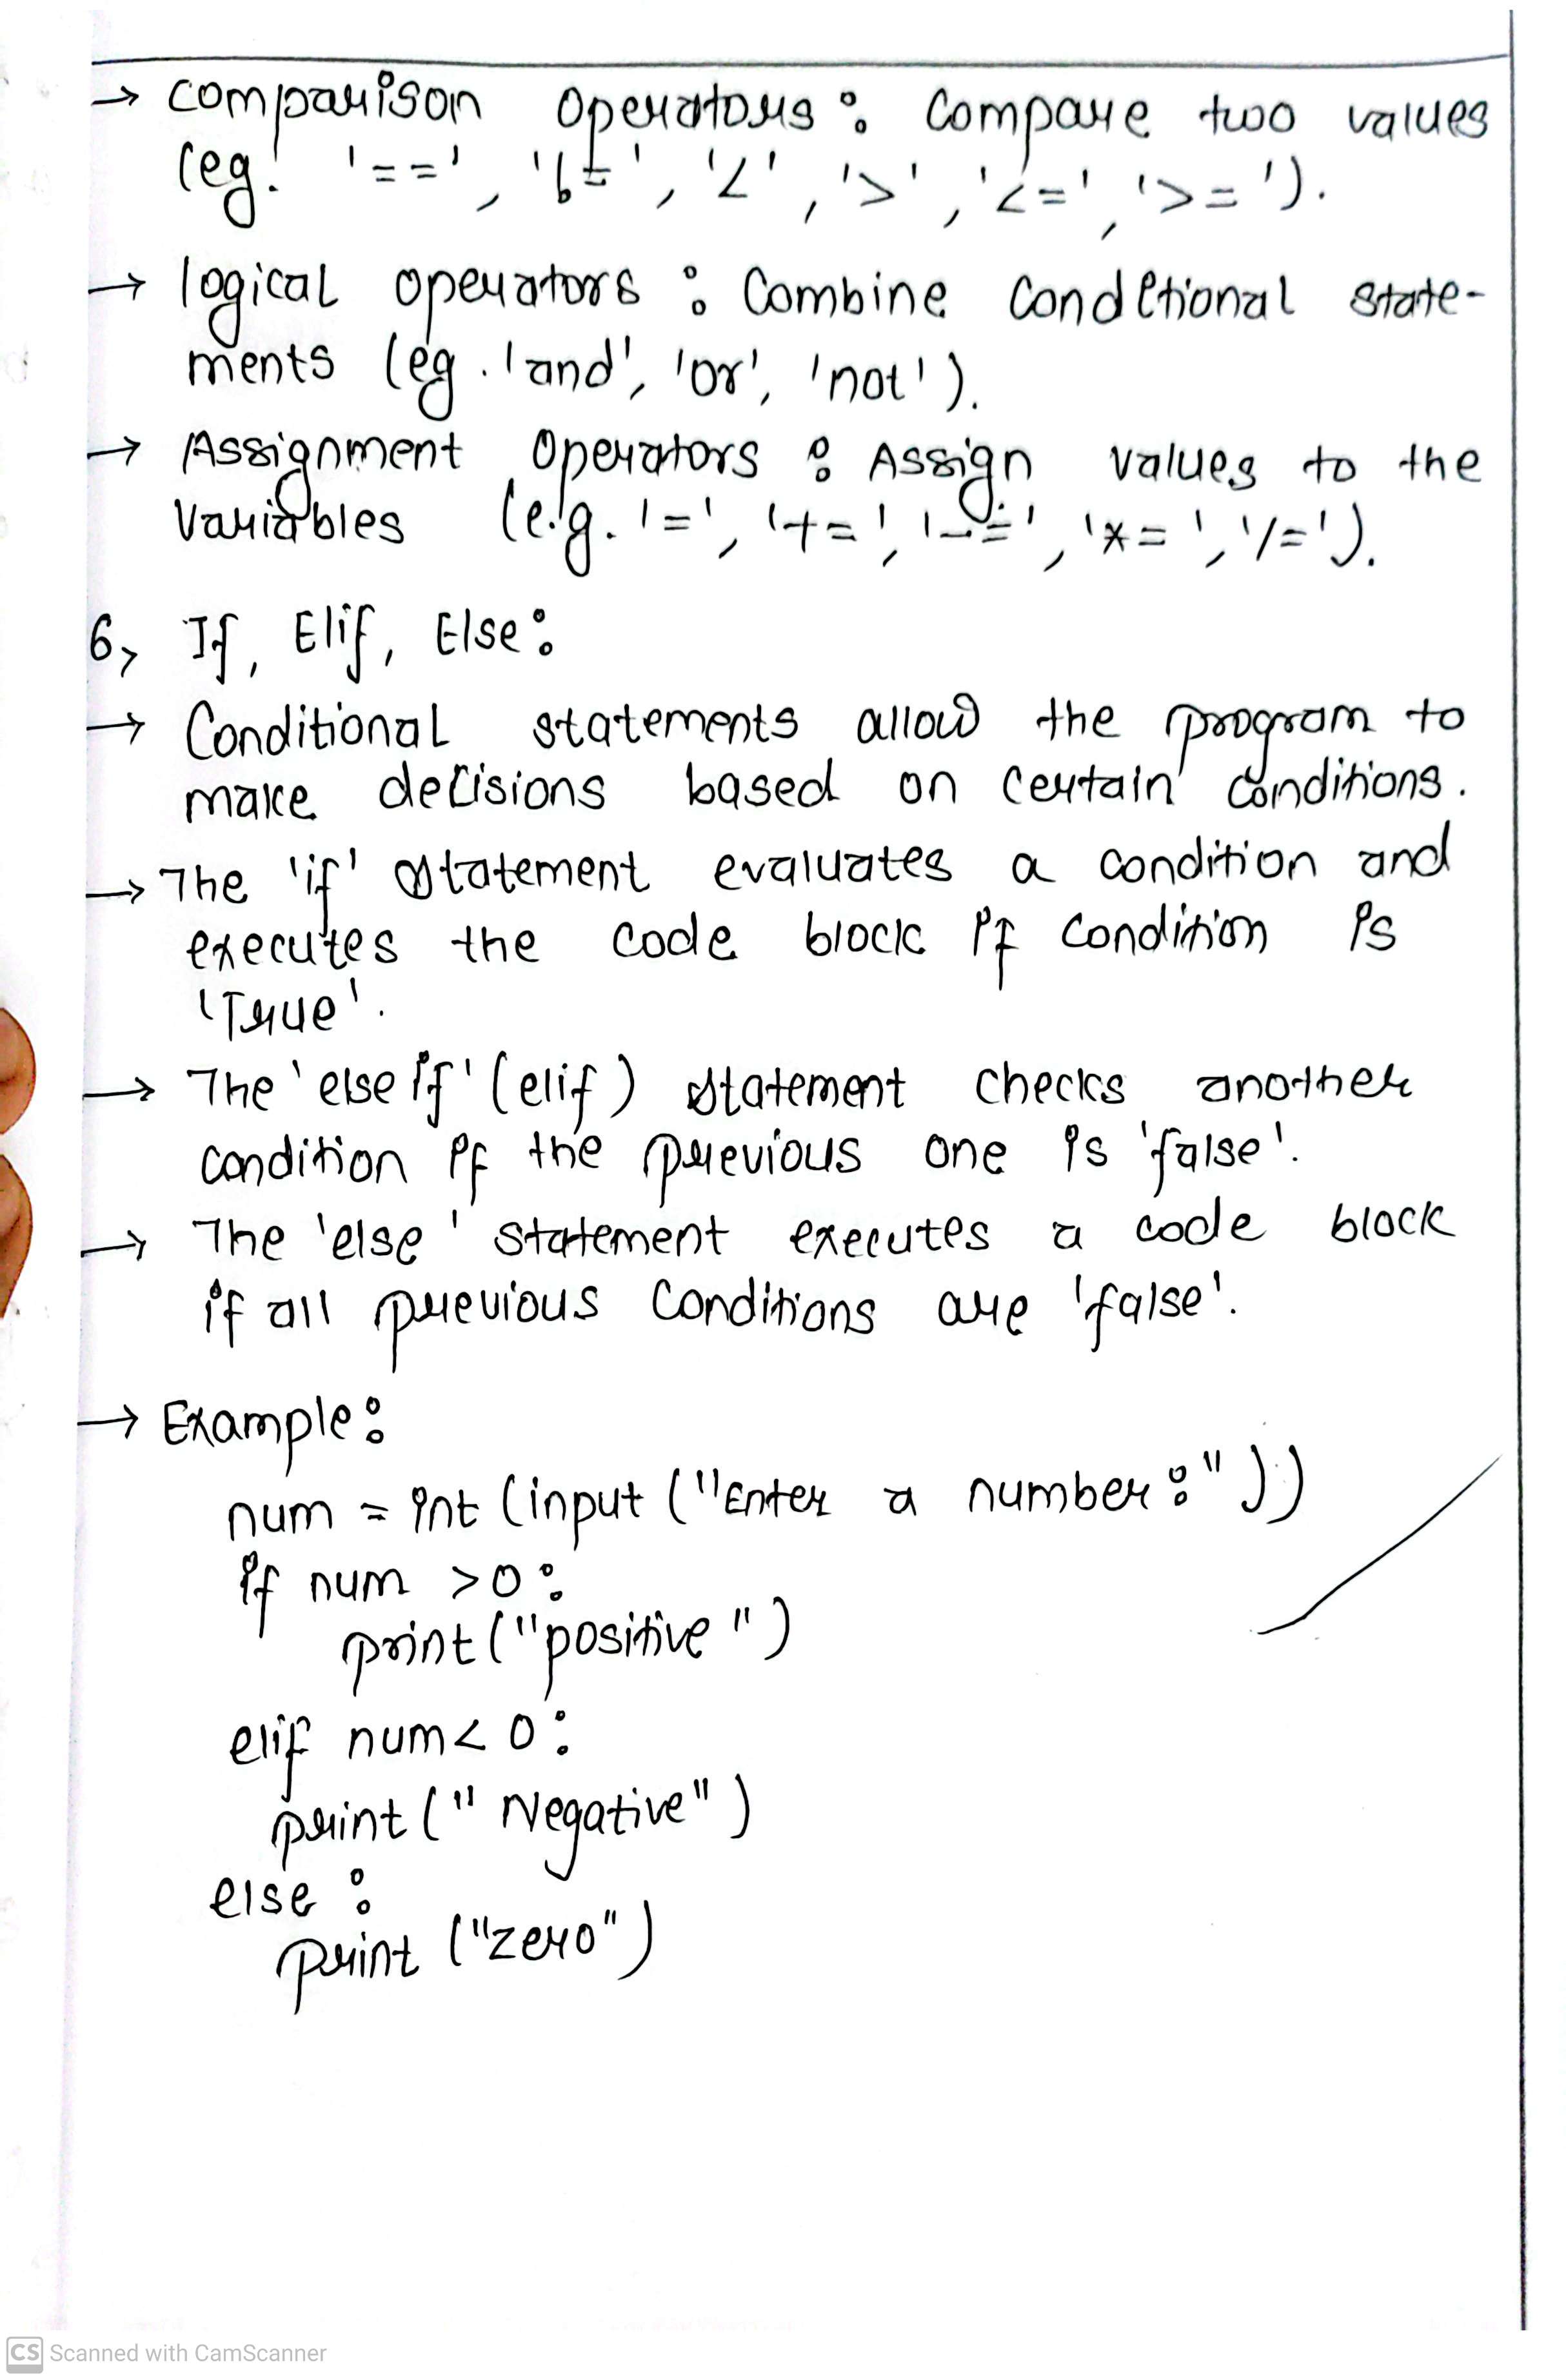 → Comparison Operators : Compare two values
(eg. '==', 'b=', '<', '>', '<=', '>=').
→ logical operators : Combine Conditional state-
ments (eg. 'and', 'or', 'not').
→ Assignment Operators : Assign values to the
Variables (e.g. '=', '+=', '-=', '*=', '/=').
6, If, Elif, Else :
→ Conditional statements allow the program to
make decisions based on certain conditions.
→ The 'if' statement evaluates a condition and
executes the code block if condition is
'True'.
→ The 'else if' (elif) statement checks another
condition if the previous one is 'false'.
→ The 'else' statement executes a code block
if all previous Conditions are 'false'.
→ Example :
num = int (input ("Enter a number :"))
if num >0 :
print ("positive")
elif num < 0 :
print (" Negative")
else :
print ("zero")
CS Scanned with CamScanner